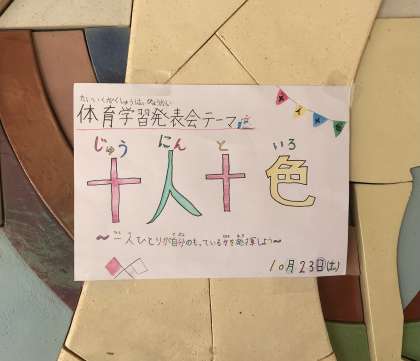 たいいくがくしゅうはっぴょうかい
体育学習発表会テーマ
じゅう にん と いろ
十人十色
〜一人ひとりが自分のもっている力を発揮しよう〜
10月23日(土)